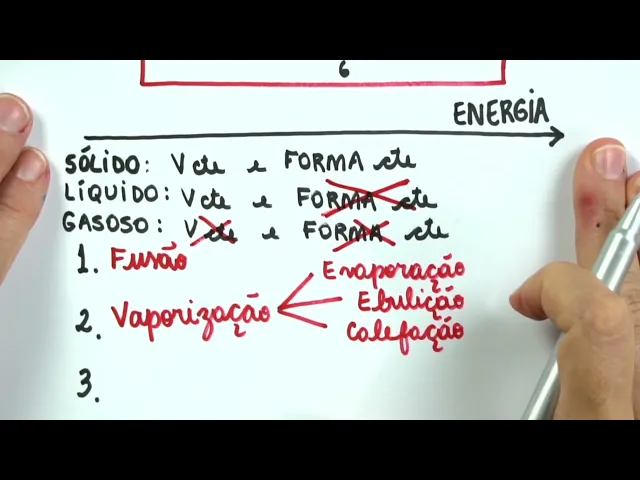 6
ENERGIA
SÓLIDO: Vcte e FORMA cte
LÍQUIDO: Vcte e FORMA cte
GASOSO: Vcte e FORMA cte
1. Fusão
2. Vaporização
Evaporação
Ebulição
Calefação
3.